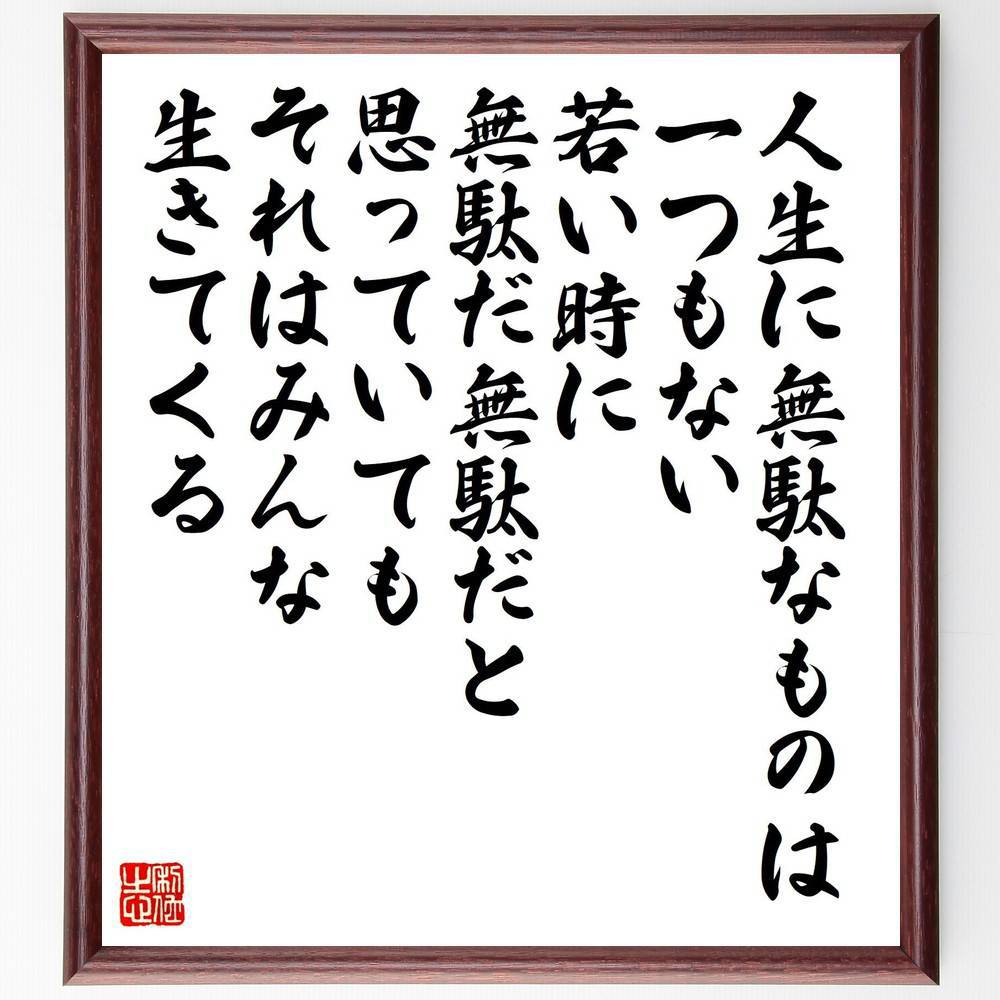 人生に無駄なものは
一つもない
若い時に
無駄だ無駄だと
思っていても
それはみんな
生きてくる